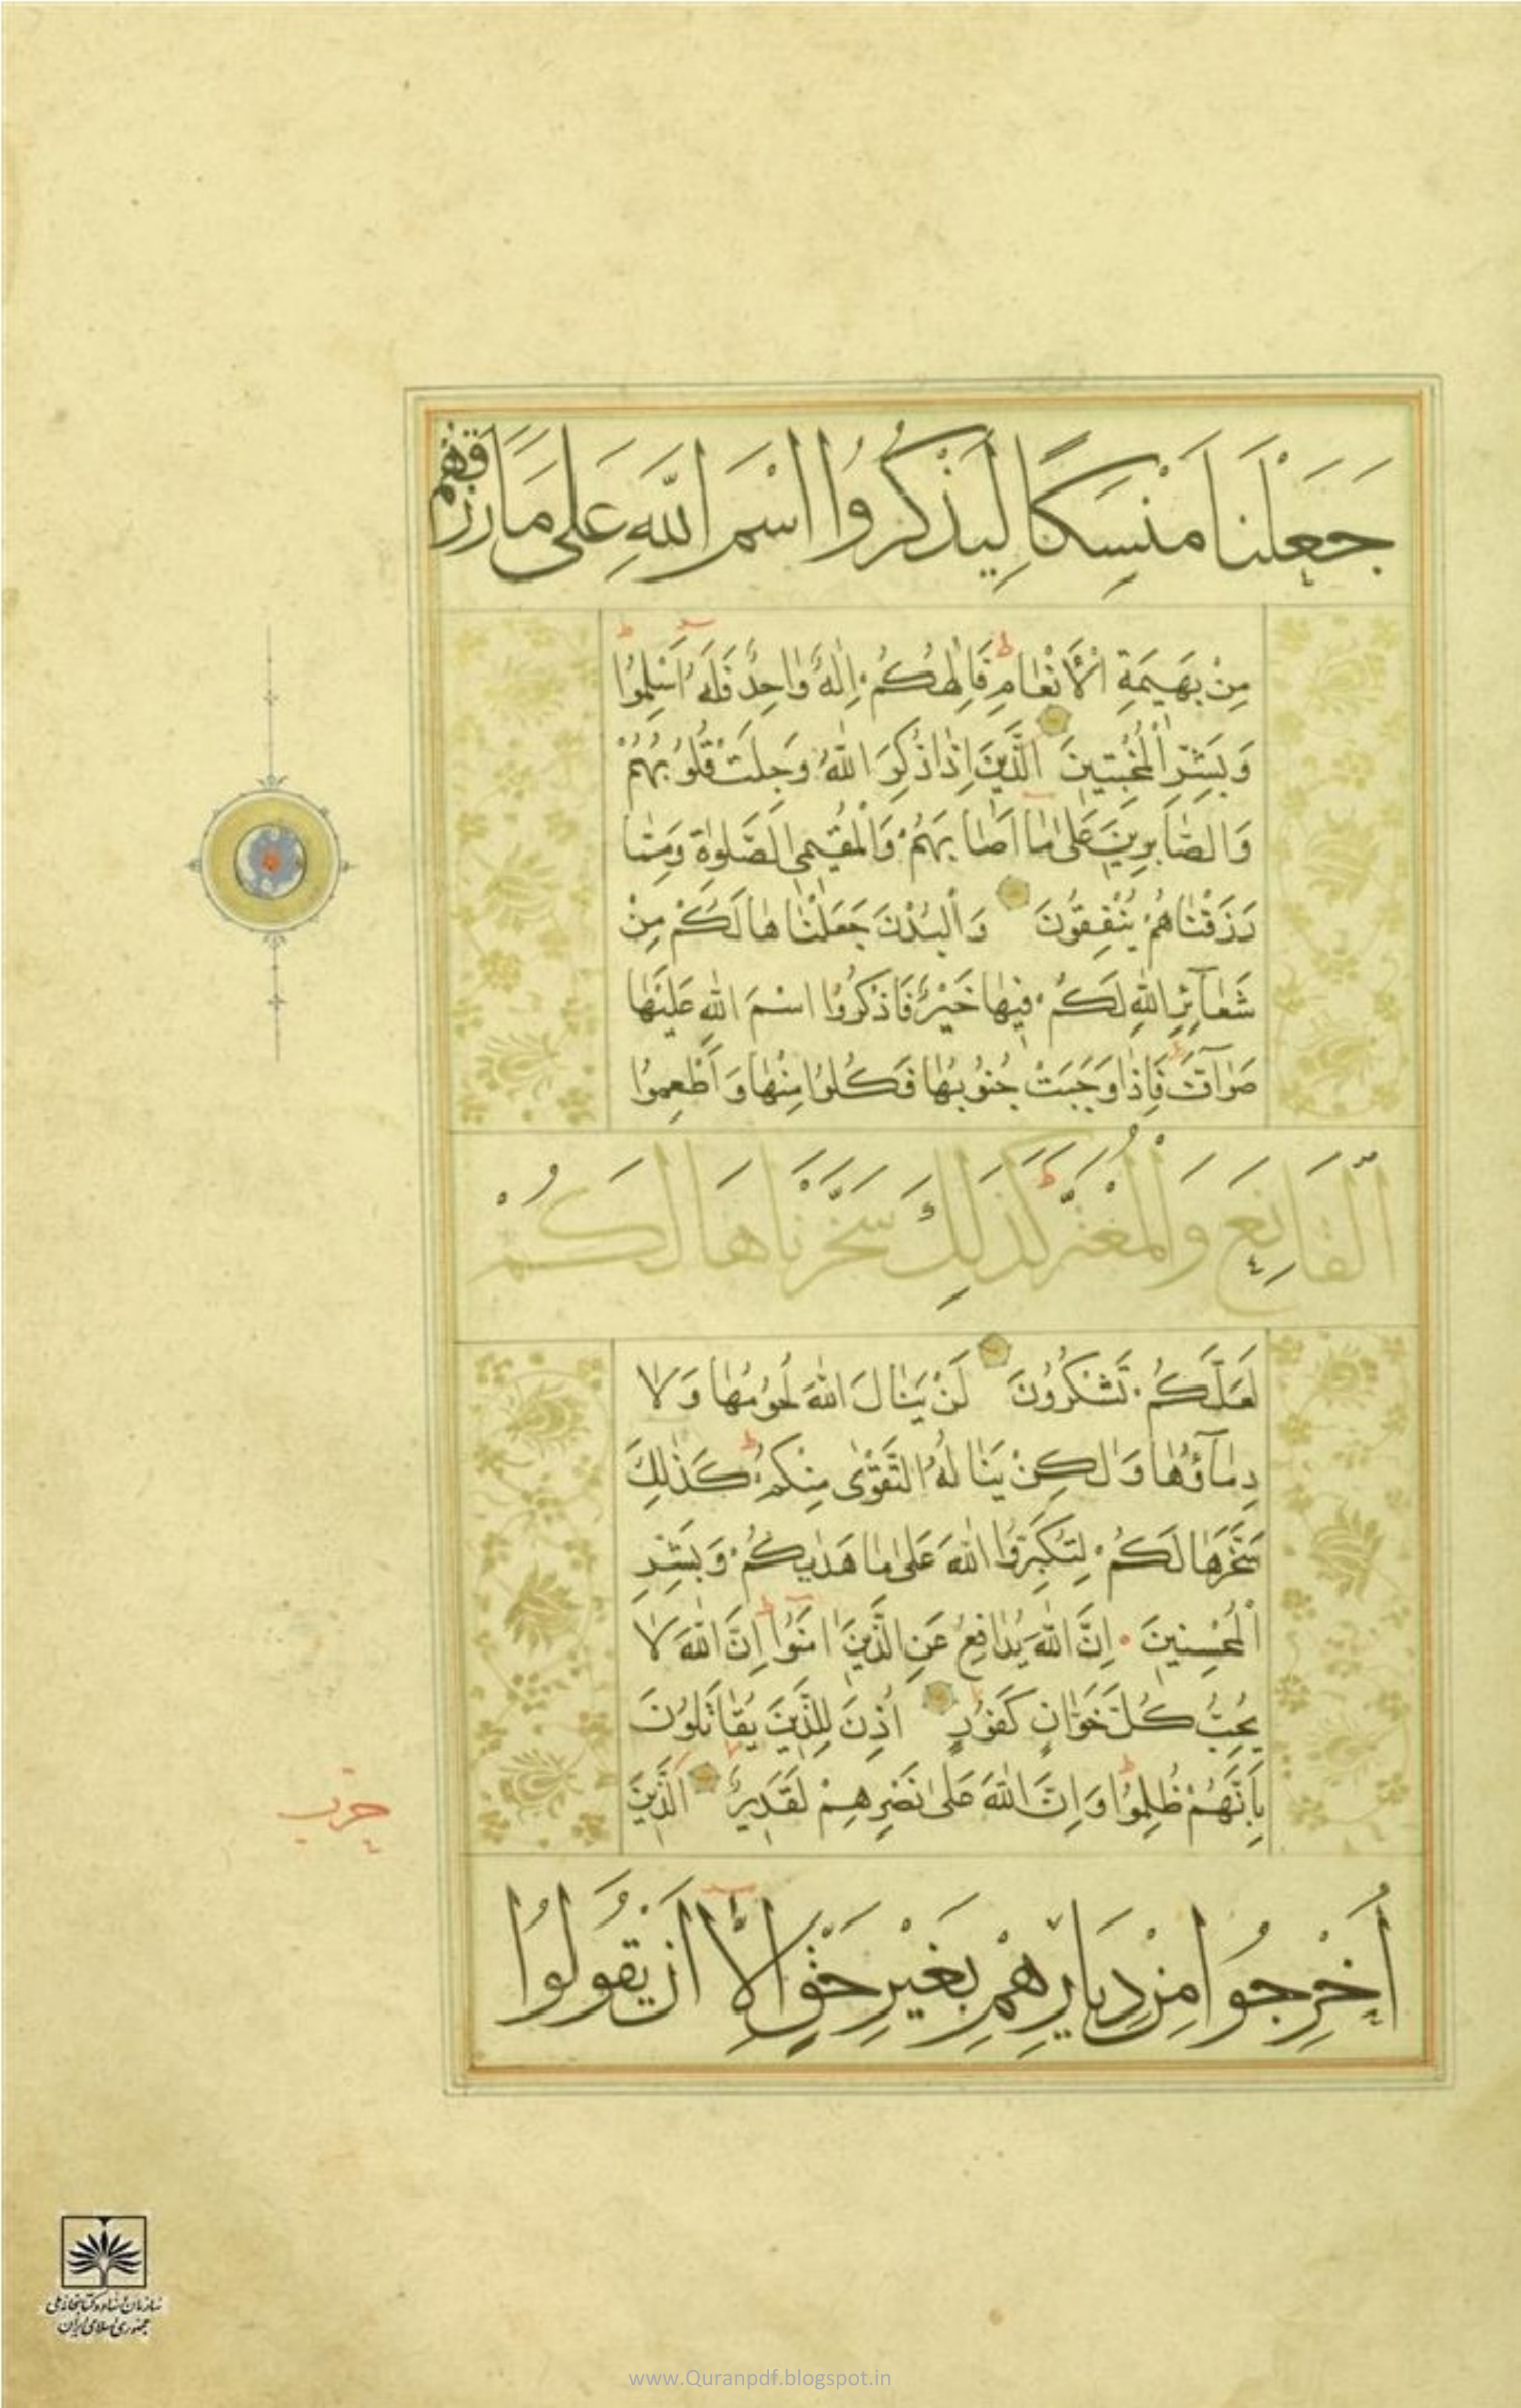 جَعَلْنَا مَنْسِكًا لِيَذْكُرُوا اسْمَ اللَّهِ عَلَى مَا رَزَقَهُمْ
مِنْ بَهِيمَةِ الْأَنْعَامِ فَإِلٰهُكُمْ إِلٰهٌ وَاحِدٌ فَلَهُ أَسْلِمُوا
وَبَشِّرِ الْمُخْبِتِينَ الَّذِينَ إِذَا ذُكِرَ اللَّهُ وَجِلَتْ قُلُوبُهُمْ
وَالصَّابِرِينَ عَلَى مَا أَصَابَهُمْ وَالْمُقِيمِي الصَّلٰوةِ وَمِمَّا
رَزَقْنَاهُمْ يُنْفِقُونَ وَالْبُدْنَ جَعَلْنَاهَا لَكُمْ مِنْ
شَعَآئِرِ اللَّهِ لَكُمْ فِيهَا خَيْرٌ فَاذْكُرُوا اسْمَ اللَّهِ عَلَيْهَا
صَوَآفَّ فَإِذَا وَجَبَتْ جُنُوبُهَا فَكُلُوا مِنْهَا وَأَطْعِمُوا
الْقَانِعَ وَالْمُعْتَرَّ كَذَلِكَ سَخَّرْنَاهَا لَكُمْ
لَعَلَّكُمْ تَشْكُرُونَ لَنْ يَنَالَ اللَّهَ لُحُومُهَا وَلَا
دِمَآؤُهَا وَلٰكِنْ يَنَالُهُ التَّقْوٰى مِنْكُمْ كَذٰلِكَ
سَخَّرَهَا لَكُمْ لِتُكَبِّرُوا اللَّهَ عَلٰى مَا هَدٰيكُمْ وَبَشِّرِ
الْمُحْسِنِينَ إِنَّ اللَّهَ يُدَافِعُ عَنِ الَّذِينَ اٰمَنُوا إِنَّ اللَّهَ لَا
يُحِبُّ كُلَّ خَوَّانٍ كَفُورٍ أُذِنَ لِلَّذِينَ يُقَاتَلُونَ
بِأَنَّهُمْ ظُلِمُوا وَإِنَّ اللَّهَ عَلٰى نَصْرِهِمْ لَقَدِيرٌ الَّذِينَ
حزب
أُخْرِجُوا مِنْ دِيَارِهِمْ بِغَيْرِ حَقٍّ إِلَّا أَنْ يَقُولُوا
سازمان اسناد و کتابخانه ملی
جمهوری اسلامی ایران
www.Quranpdf.blogspot.in